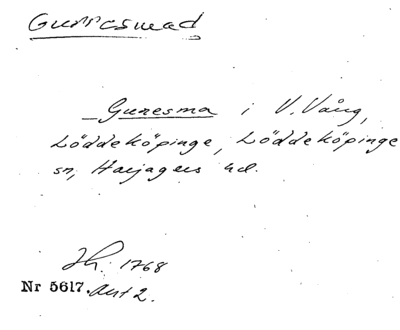 Gunnesmad
Gunesma i V. Vång,
Löddeköpinge, Löddeköpinge
sn, Harjagers hd.
Th. 1768
Nr 5617. Akt 2.